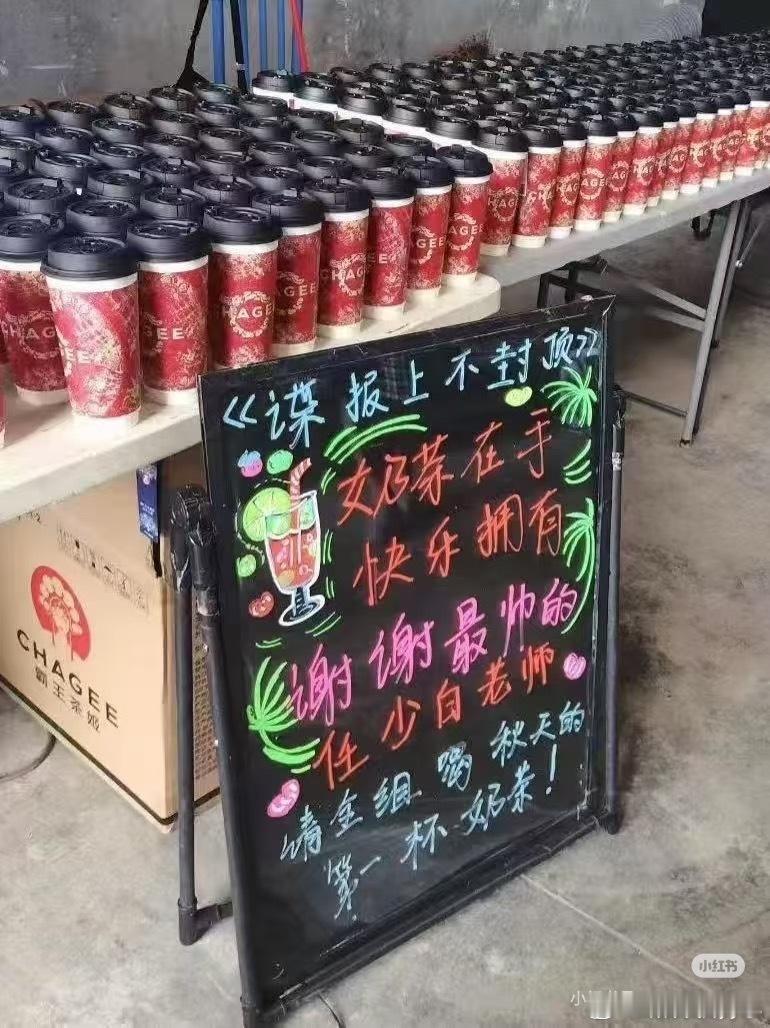 CHAGEE
CHAGEE
CHAGEE
CHAGEE
CHAGEE
CHAGEE
<<谍报上不封顶>>
奶茶在手
快乐拥有
谢谢最帅的
任少白老师
请全组喝秋天的
第一杯奶茶!
CHAGEE
霸王茶姬
小红书